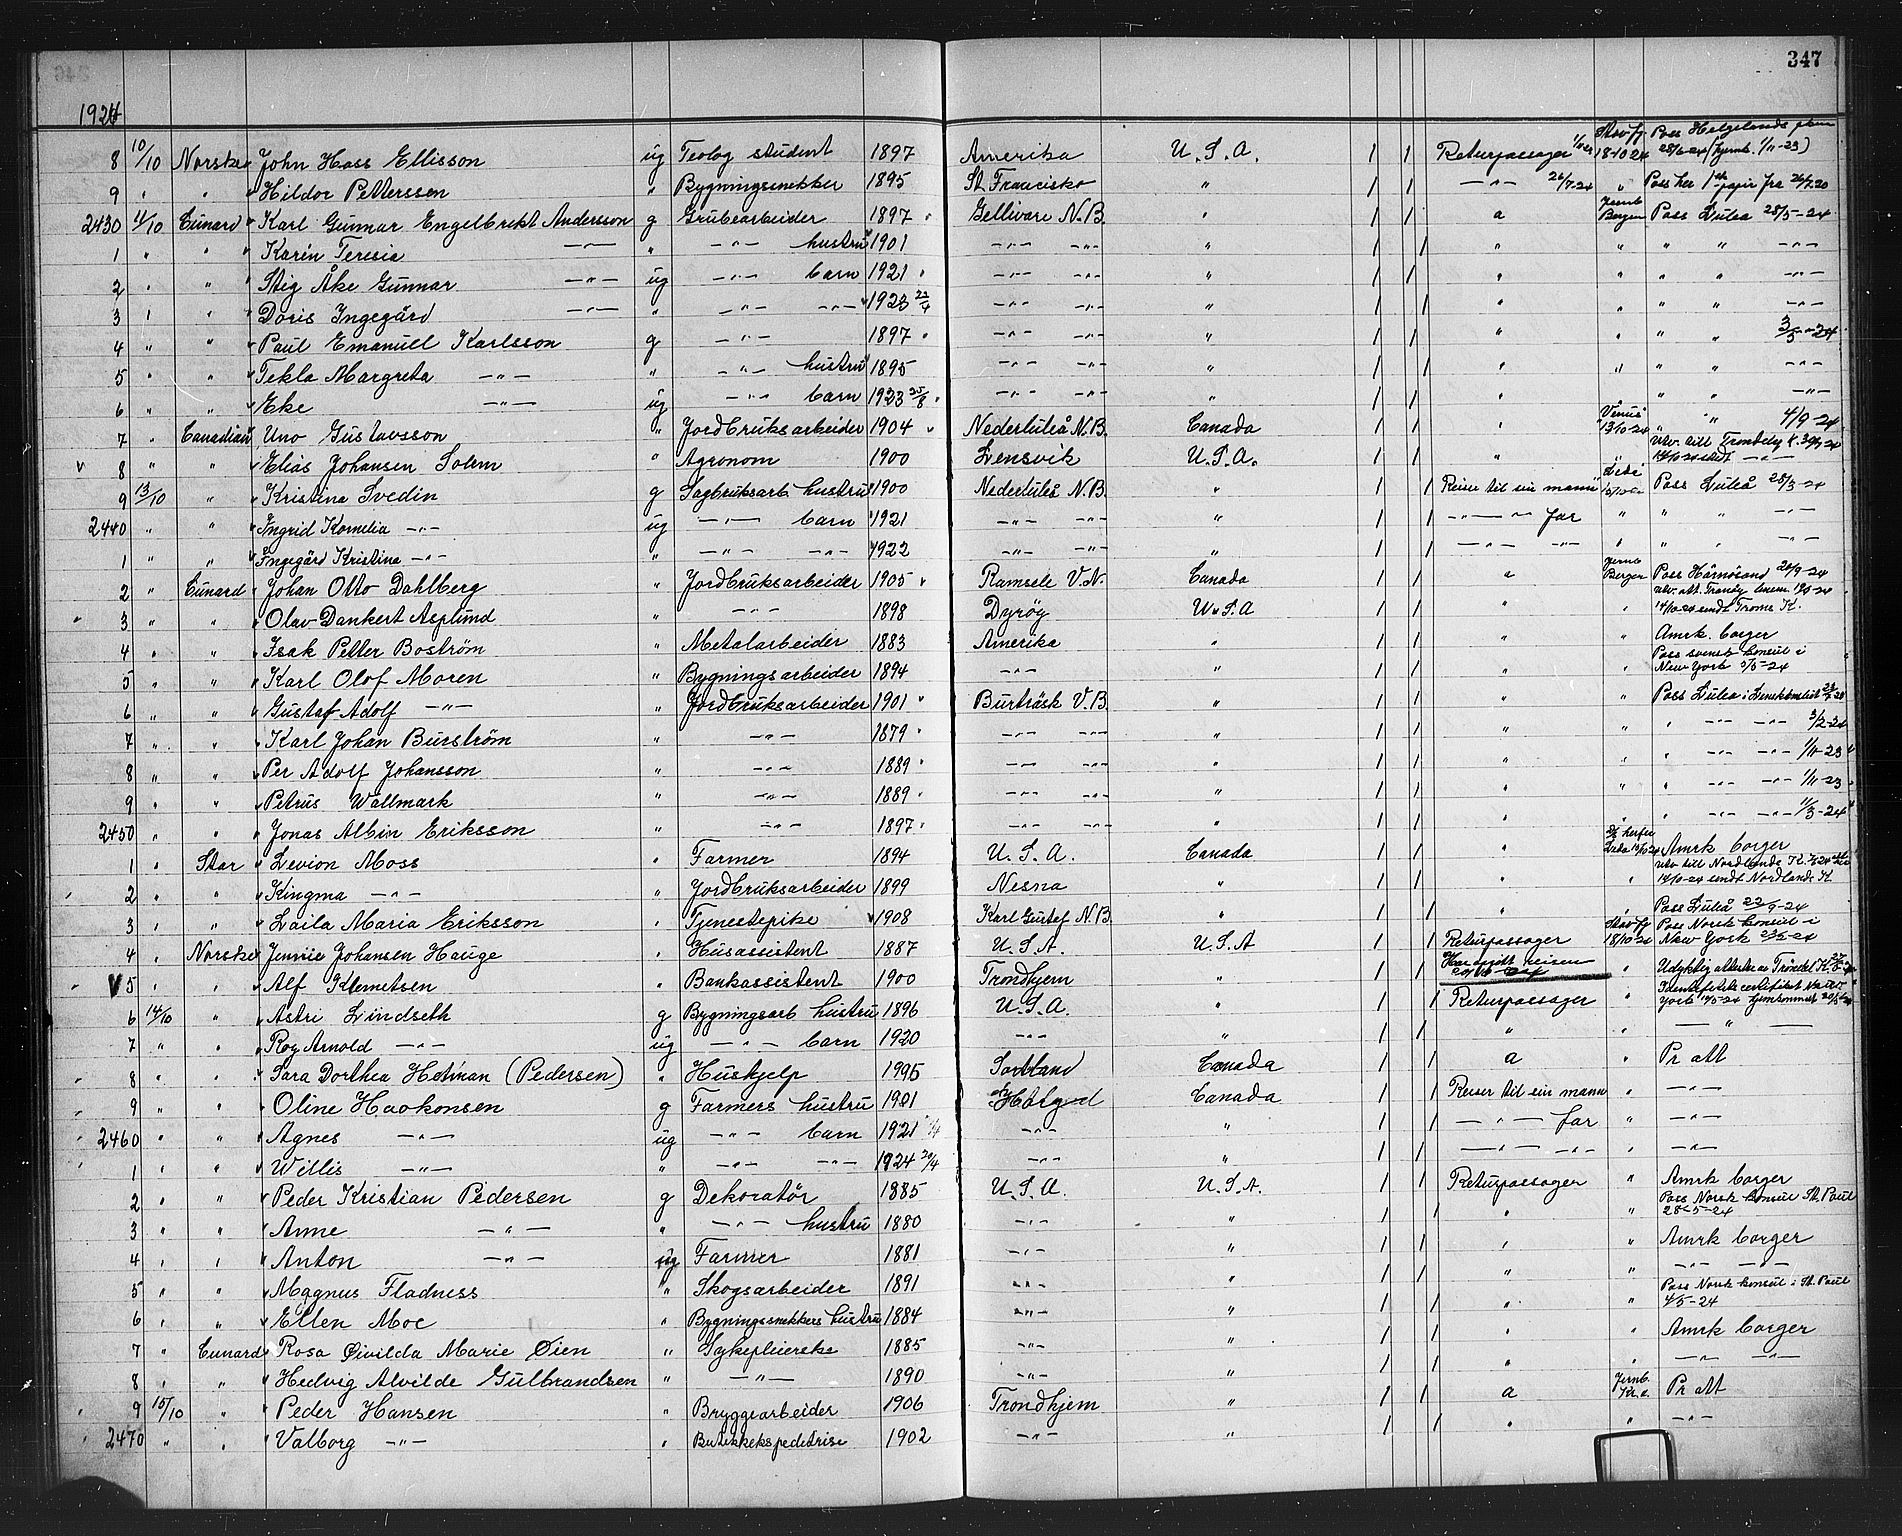 347
1924
8 10/10 Norske " John Hass Ellisson ug Teolog student 1897 Amerika U.S.A. 1 1 Returpassager 18-10-24 Pass Helgelands 28/6-24 (hjemk. 1/11-23)
9 " " " Hildor Petterssen " Bygningsnekker 1895 St Francisko " 1 1 -"- 26/7.24 " Pass her 26/7.20
2430 11/10 Cunard " Karl Gunnar Engelbrekt Andersson g Grubearbeider 1897 Gellivare N.B. " 1 1 a Jernb Bergen Pass Luleå 28/5-24
1 " " " Karin Teresia -"- " -"- hustru 1901 -"- -"- " 1 1 " " " " -"-
2 " " " Stig Åke Gunnar -"- ug -"- barn 1921 -"- -"- " 1 1 " " " " -"-
3 " " " Doris Ingegärd -"- " -"- -"- 1923 22/4 -"- -"- " 1 1 " " " " -"-
4 " " " Paul Emanuel Karlsson g -"- 1897 -"- -"- " 1 1 " " " " 3/5-24
5 " " " Tekla Margreta -"- " -"- hustru 1895 -"- -"- " 1 1 " " " " -"-
6 " " " Eke -"- ug -"- barn 1923 25/8 -"- -"- " 1 1 " " " " -"-
7 " Canadian " Uno Gustavsson " Jordbruksarbeider 1904 Nederluleå N.B. Canada 1 1 " Venus 13/10-24 " " 4/9-24
8 " " " Elias Johansen Solem " Agronom 1900 Lensvik U.S.A. 1 1 " " utv. till Trondelg K. 30/9-24 14/10-24 -"-
9 13/10 " " Kristina Svedin g Sagbruksarb hustru 1900 Nederluleå N.B. " 1 1 Reiser til sin mann Pass Luleå 28/3-24
2440 " " " Ingrid Kornelia -"- ug -"- barn 1921 -"- -"- " 1 1 -"- far " " " -"-
1 " " " Ingegärd Kristina -"- " -"- -"- 1922 -"- -"- " 1 1 -"- -"- " " " -"-
2 " Cunard " Johan Otto Dahlberg " Jordbruksarbeider 1905 Ramsele V.N. Canada 1 1 a Jernb Bergen Pass Härnösand 24/9-24
3 " " " Olav Dankert Asplund " -"- 1898 Dyrøy U.S.A 1 1 " " utv. att. Tranøy 14/10-24 sendt Troms K.
4 " " " Isak Petter Boström " Metalarbeider 1883 Amerika " 1 1 " " Amrk. borger
5 " " " Karl Olof Moren " Bygningsarbeider 1894 -"- " 1 1 " " Pass svensk konsul i New York 5/5-24
6 " " " Gustaf Adolf -"- " Jordbruksarbeider 1901 Burträsk V.B. " 1 1 " " Pass Luleå
7 " " " Karl Johan Burström " -"- 1879 -"- -"- " 1 1 " " " -"- -"- 3/2-24
8 " " " Per Adolf Johansson " -"- 1889 -"- -"- " 1 1 " " " -"- -"- 1/11-23
9 " " " Petrus Wallmark " -"- 1889 -"- -"- " 1 1 " " " -"- -"- 1/11-23
2450 " " " Jonas Albin Eriksson " -"- 1897 -"- -"- " 1 1 " " " -"- -"- 1/3-24
1 " Star " Levion Moss " Farmer 1894 U.S.A. Canada 1 1 " Amrk borger
2 " " " Kingma -"- " Jordbruksarbeider 1899 Nesna " 1 1 " " utv till Nordlands K. 14/10-24 sendt Nordlands K
3 " " " Laila Maria Eriksson " Tjenestepike 1908 Karl Gustef N.B. " 1 1 " " Pass Luleå 22/9-24
4 " Norske " Jennie Johansen Hauge " Husassistent 1887 U.S.A. U.S.A 1 1 Returpassager 18/10-24 Pass Norsk konsul i New York 23/5-24
V5 " " " Alf Klemetsen " Bankassistent 1900 Trondhjem " 1 1 Har opgitt reisen " Utdyktig attest av Trøndel K.
6 14/10 " " Astri Lindseth g Bygningsarb hustru 1896 U.S.A. " 1 1 Returpassager " Identifikt certifikat New York 14/5-24 hjemkommet
7 " " " Roy Arnold -"- ug -"- barn 1920 -"- " 1 1 " " -"-
8 " " " Sara Dorthea Hetman (Pedersen) " Huskjelp 1995 Sortland Canada 1 1 a " Pr att
9 " " " Oline Haakonsen g Farmers hustru 1901 Canada 1 1 Reiser til sin mann " -"-
2460 " " " Agnes -"- ug -"- barn 1921 -"- " 1 1 -"- far " -"-
1 " " " Willis -"- " -"- -"- 1924 20/4 -"- " 1 1 -"- -"- " -"-
2 " " " Peder Kristian Pedersen g Dekoratør 1885 U.S.A. U.S.A. 1 1 Returpassager " Amrk borger
3 " " " Anne -"- " -"- hustru 1880 -"- " 1 1 " " Pass Norsk konsul St. Paul 28-5-24
4 " " " Anton -"- ug Farmer 1881 -"- " 1 1 " " Amrk borger
5 " " " Magnus Fladness " Skogsarbeider 1891 -"- " 1 1 " " -"- -"-
6 " " " Ellen Moe " Bygningssnekkers hustru 1884 -"- " 1 1 " " Pass Norsk konsul i St. Paul 4/5-24
7 " Cunard " Rosa Øivilda Marie Øien " Sykepleierske 1885 -"- " 1 1 " " Amrk borger
8 " " " Hedvig Alvilde Gulbrandsen " -"- 1890 -"- " 1 1 " " -"- -"-
9 15/10 " " Peder Hansen " Bryggearbeider 1906 Trondhjem " 1 1 a Jernb. Kr.a. Pr att
2470 " " " Valborg -"- " Butikkekspeditrise 1902 -"- " 1 1 " " -"-